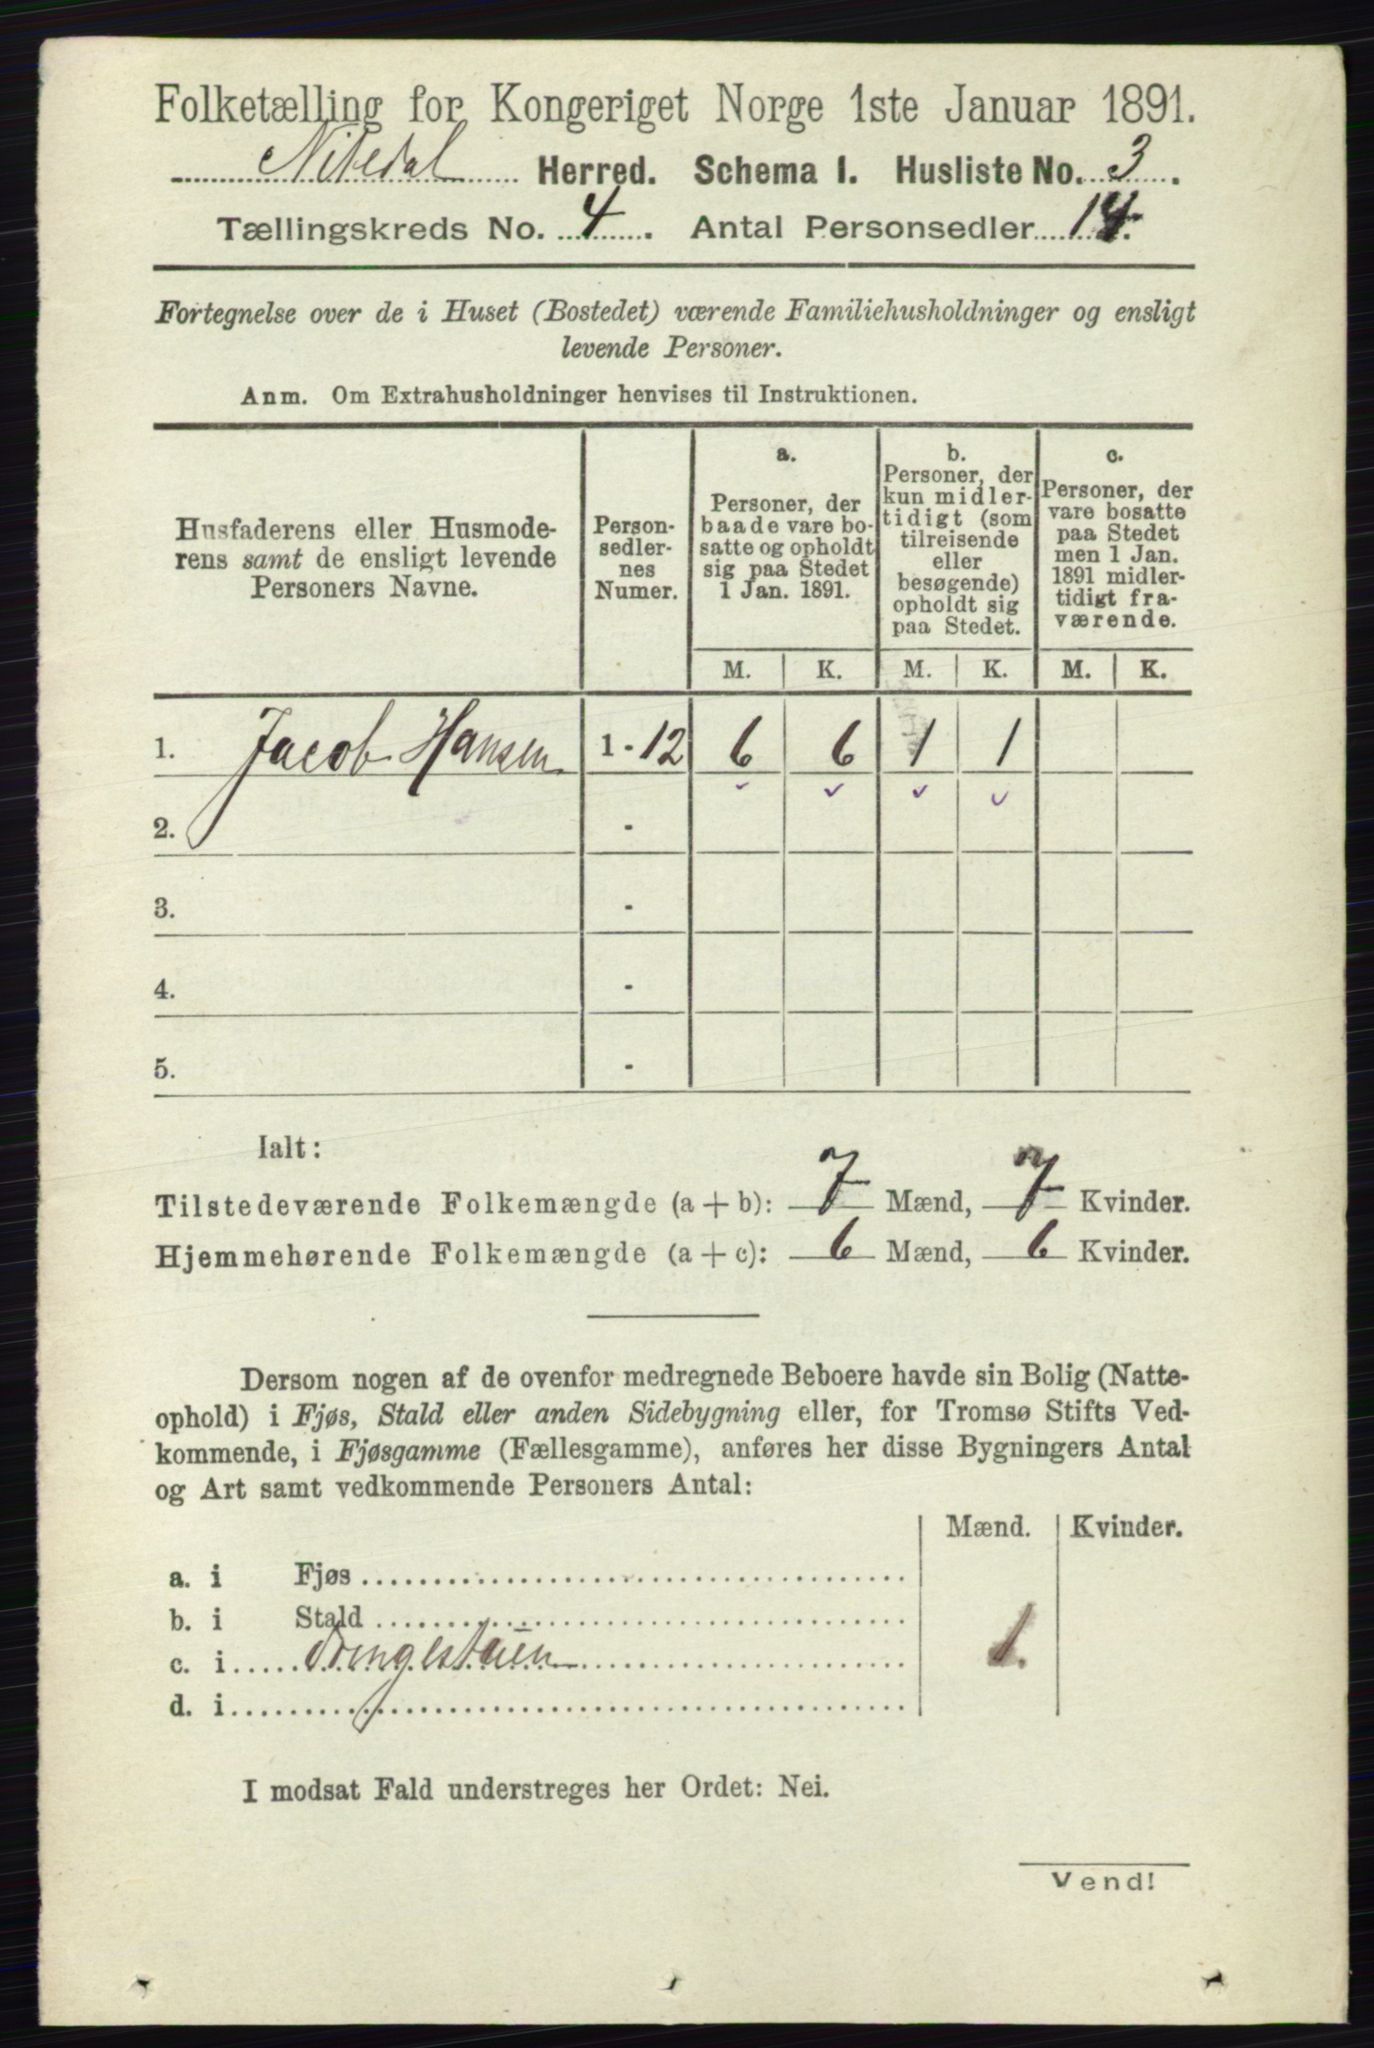 Folketælling for Kongeriget Norge 1ste Januar 1891.
Nitedal Herred. Schema 1. Husliste No. 3.
Tællingskreds No. 4. Antal Personsedler 14.
Fortegnelse over de i Huset (Bostedet) værende Familiehusholdninger og ensligt
levende Personer.
Anm. Om Extrahusholdninger henvises til Instruktionen.
Husfaderens eller Husmode-
rens samt de ensligt levende
Personers Navne.
Person-
sedler-
nes
Numer.
a.
Personer, der
baade vare bo-
satte og opholdt
sig paa Stedet
1 Jan. 1891.
b.
Personer, der
kun midler-
tidigt (som
tilreisende
eller
besøgende)
opholdt sig
paa Stedet.
c.
Personer, der
vare bosatte
paa Stedet
men 1 Jan.
1891 midler-
tidigt fra-
værende.
M. K. M. K. M. K.
1. Jacob Hansen 1 - 12 6 6 1 1
2. -
3. -
4. -
5. -
Ialt:
Tilstedeværende Folkemængde (a + b): 7 Mænd, 7 Kvinder.
Hjemmehørende Folkemængde (a + c): 6 Mænd, 6 Kvinder.
Dersom nogen af de ovenfor medregnede Beboere havde sin Bolig (Natte-
ophold) i Fjøs, Stald eller anden Sidebygning eller, for Tromsø Stifts Ved-
kommende, i Fjøsgamme (Fællesgamme), anføres her disse Bygningers Antal
og Art samt vedkommende Personers Antal:
Mænd. Kvinder.
a. i Fjøs
b. i Stald
c. i Drengestuen 1.
d. i
I modsat Fald understreges her Ordet: Nei.
Vend!